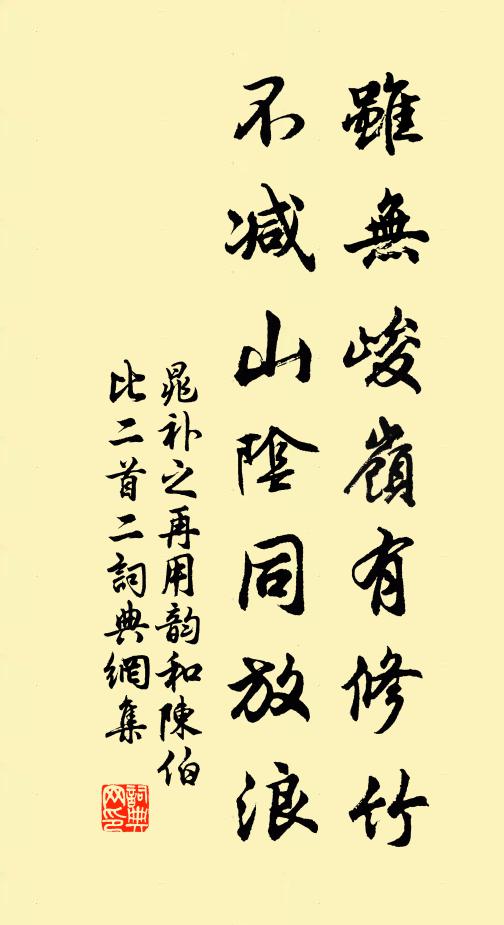 雖無峻嶺有修竹
不減山陰同放浪
晁補之再用韵和陳伯
比二首二詞典網集
詞典网印